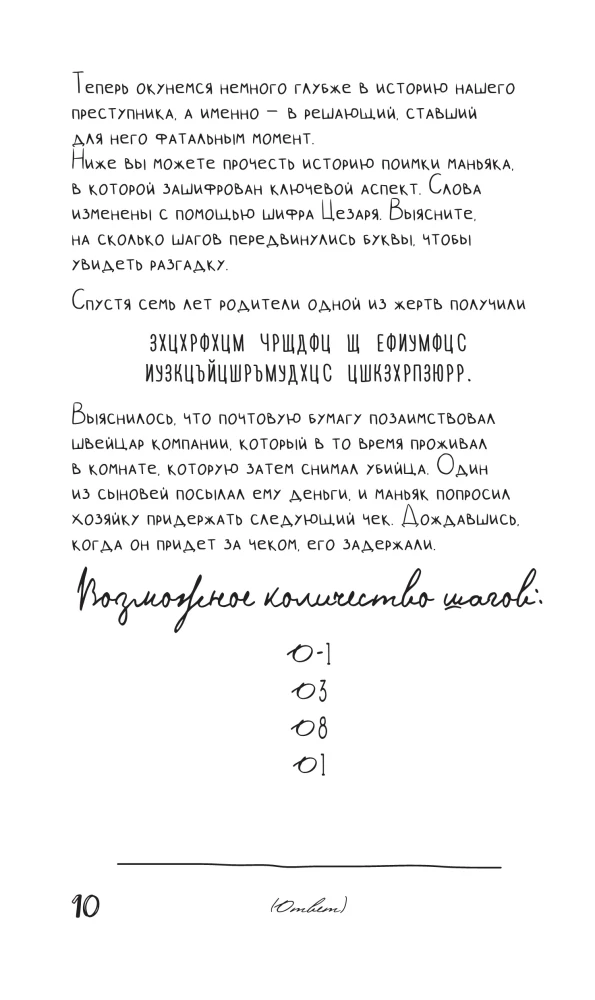 Теперь окунемся немного глубже в историю нашего
преступника, а именно — в решающий, ставший
для него фатальным момент.
Ниже вы можете прочесть историю поимки маньяка,
в которой зашифрован ключевой аспект. Слова
изменены с помощью шифра Цезаря. Выясните,
на сколько шагов передвинулись буквы, чтобы
увидеть разгадку.
Спустя семь лет родители одной из жертв получили
ЗХЦХРФХЦМ ЧРЩДФЦ Щ ЕФИУМФЦС
ИУЗКЦЪЙЦШРЪМУДХЦС ЦШКЗХРПЗЮРР.
Выяснилось, что почтовую бумагу позаимствовал
швейцар компании, который в то время проживал
в комнате, которую затем снимал убийца. Один
из сыновей посылал ему деньги, и маньяк попросил
хозяйку придержать следующий чек. Дождавшись,
когда он придет за чеком, его задержали.
Возможное количество шагов:
О-1
О3
О8
О1
10
(Ответ)